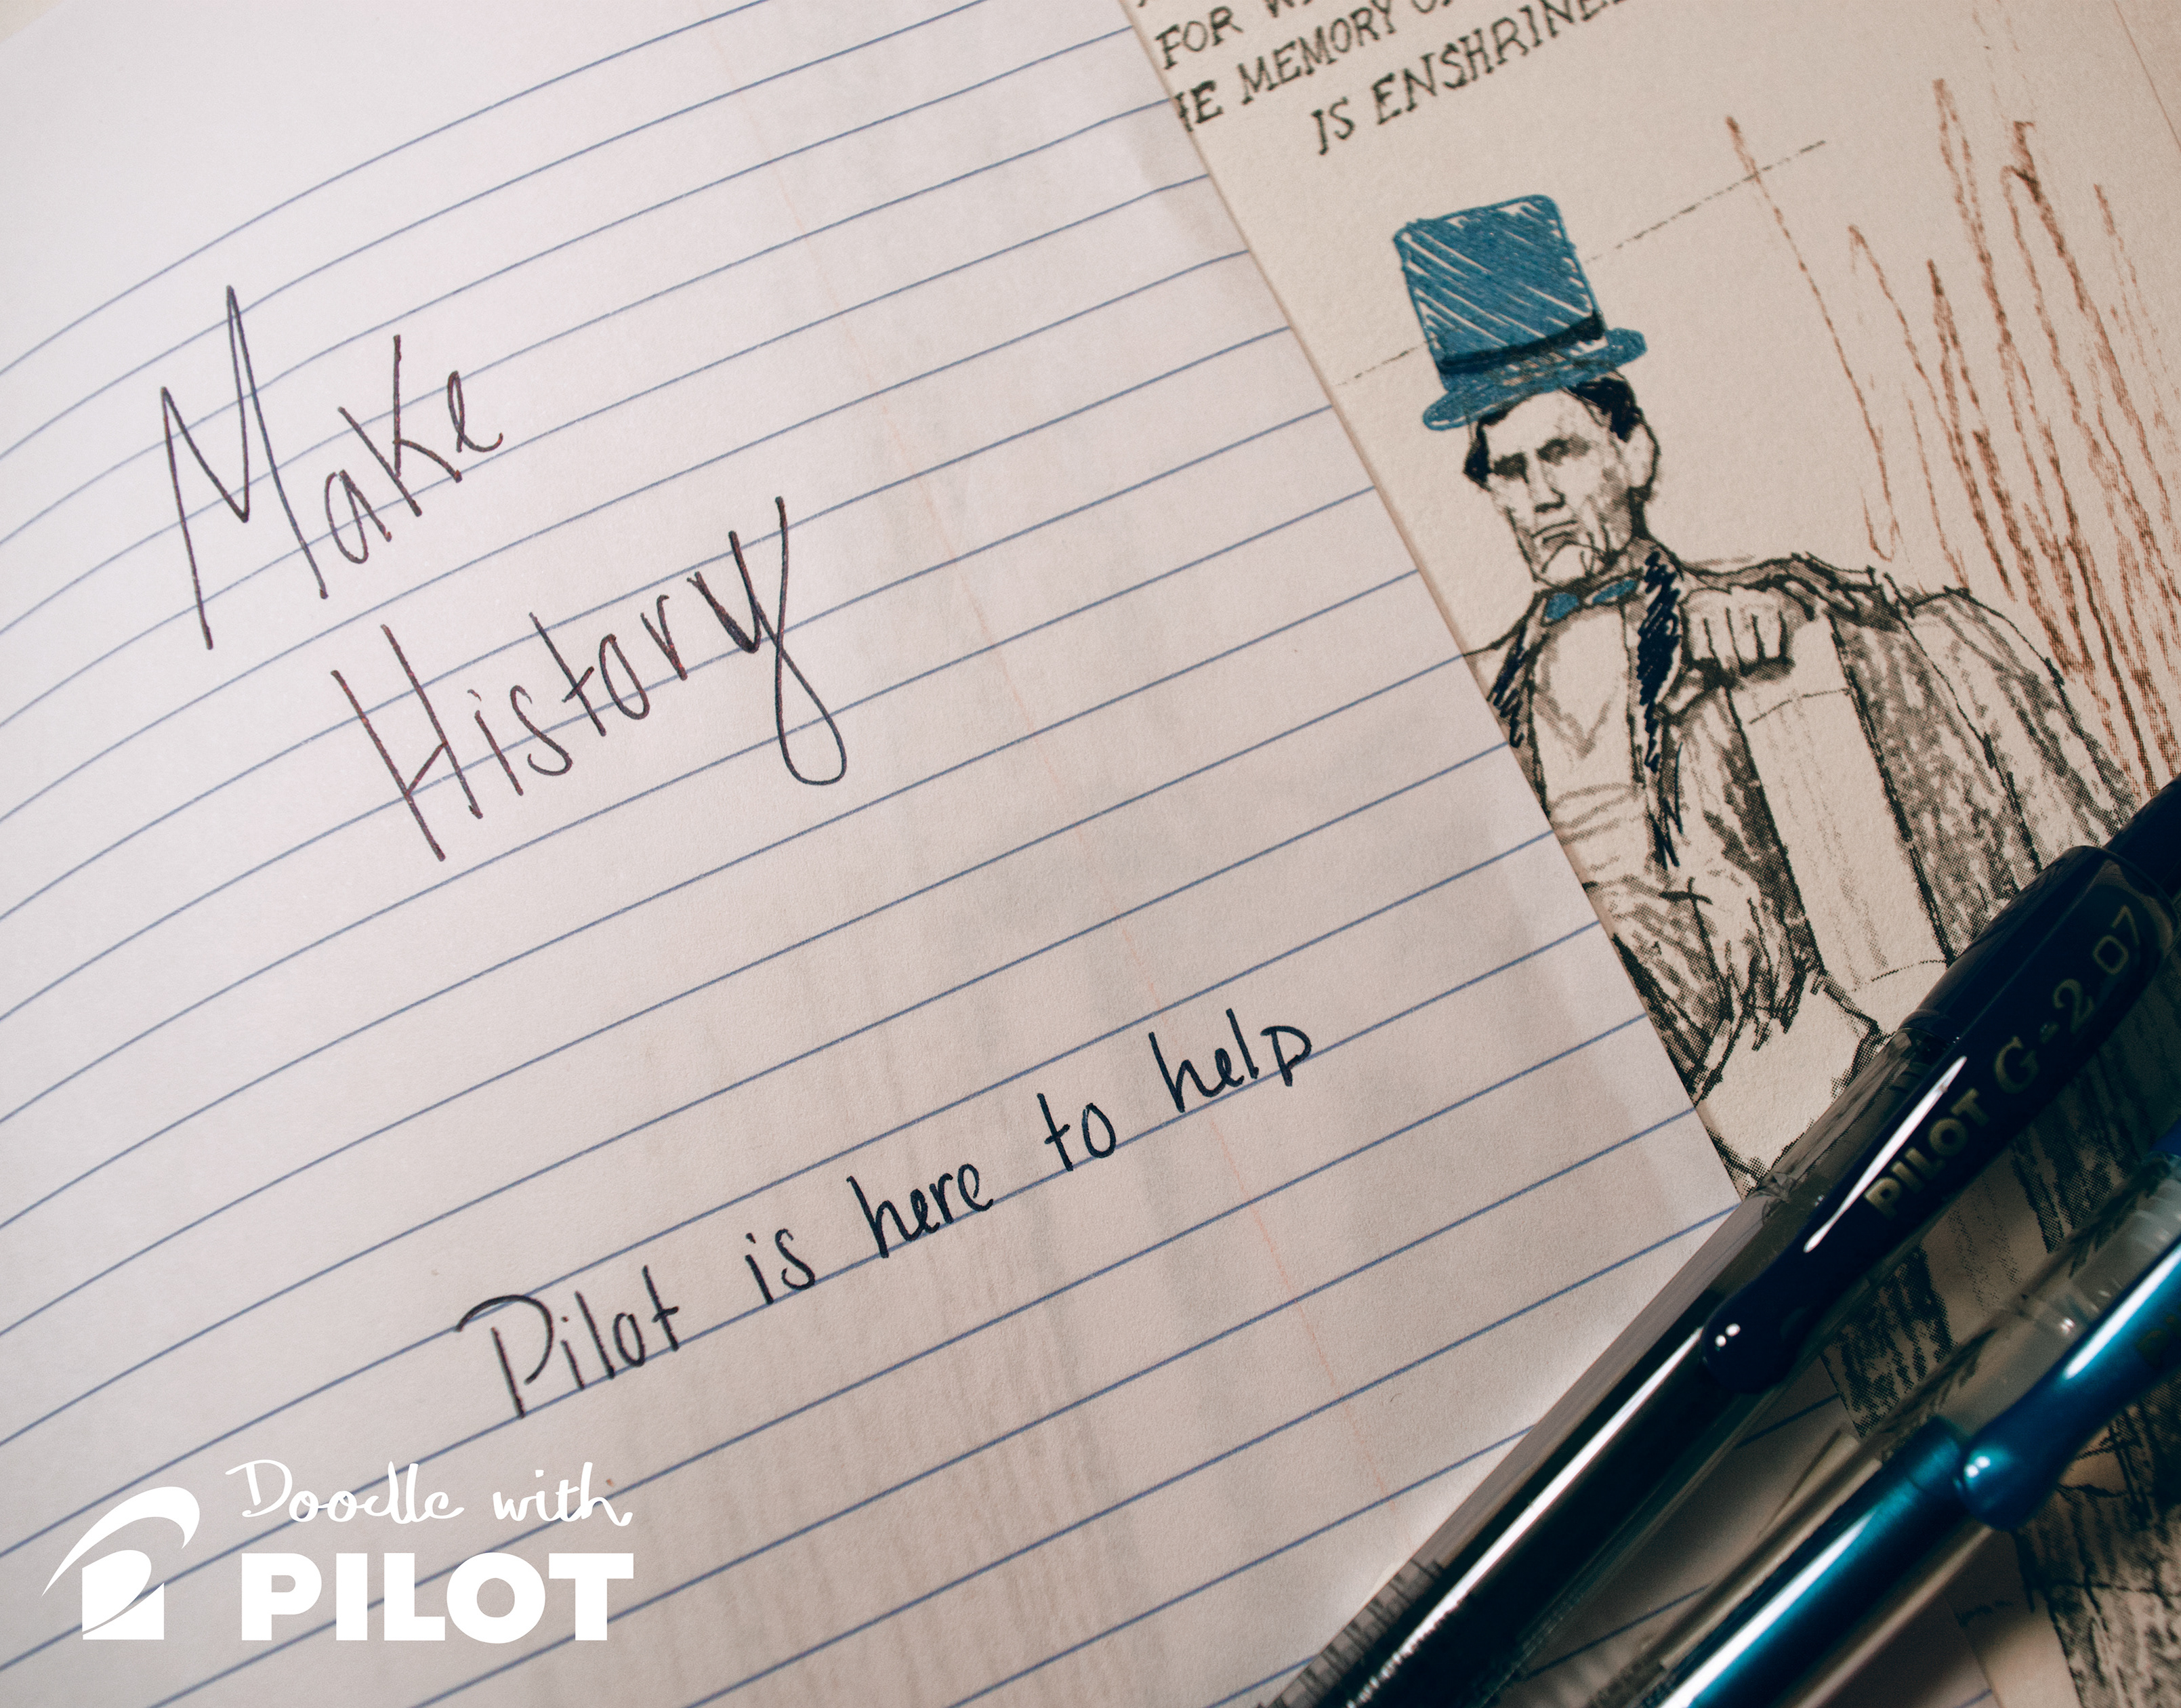 Make
History
Pilot is here to help
Doodle with
PILOT
FOR W
HE MEMORY O
IS ENSHRINE
PILOT G-2 07